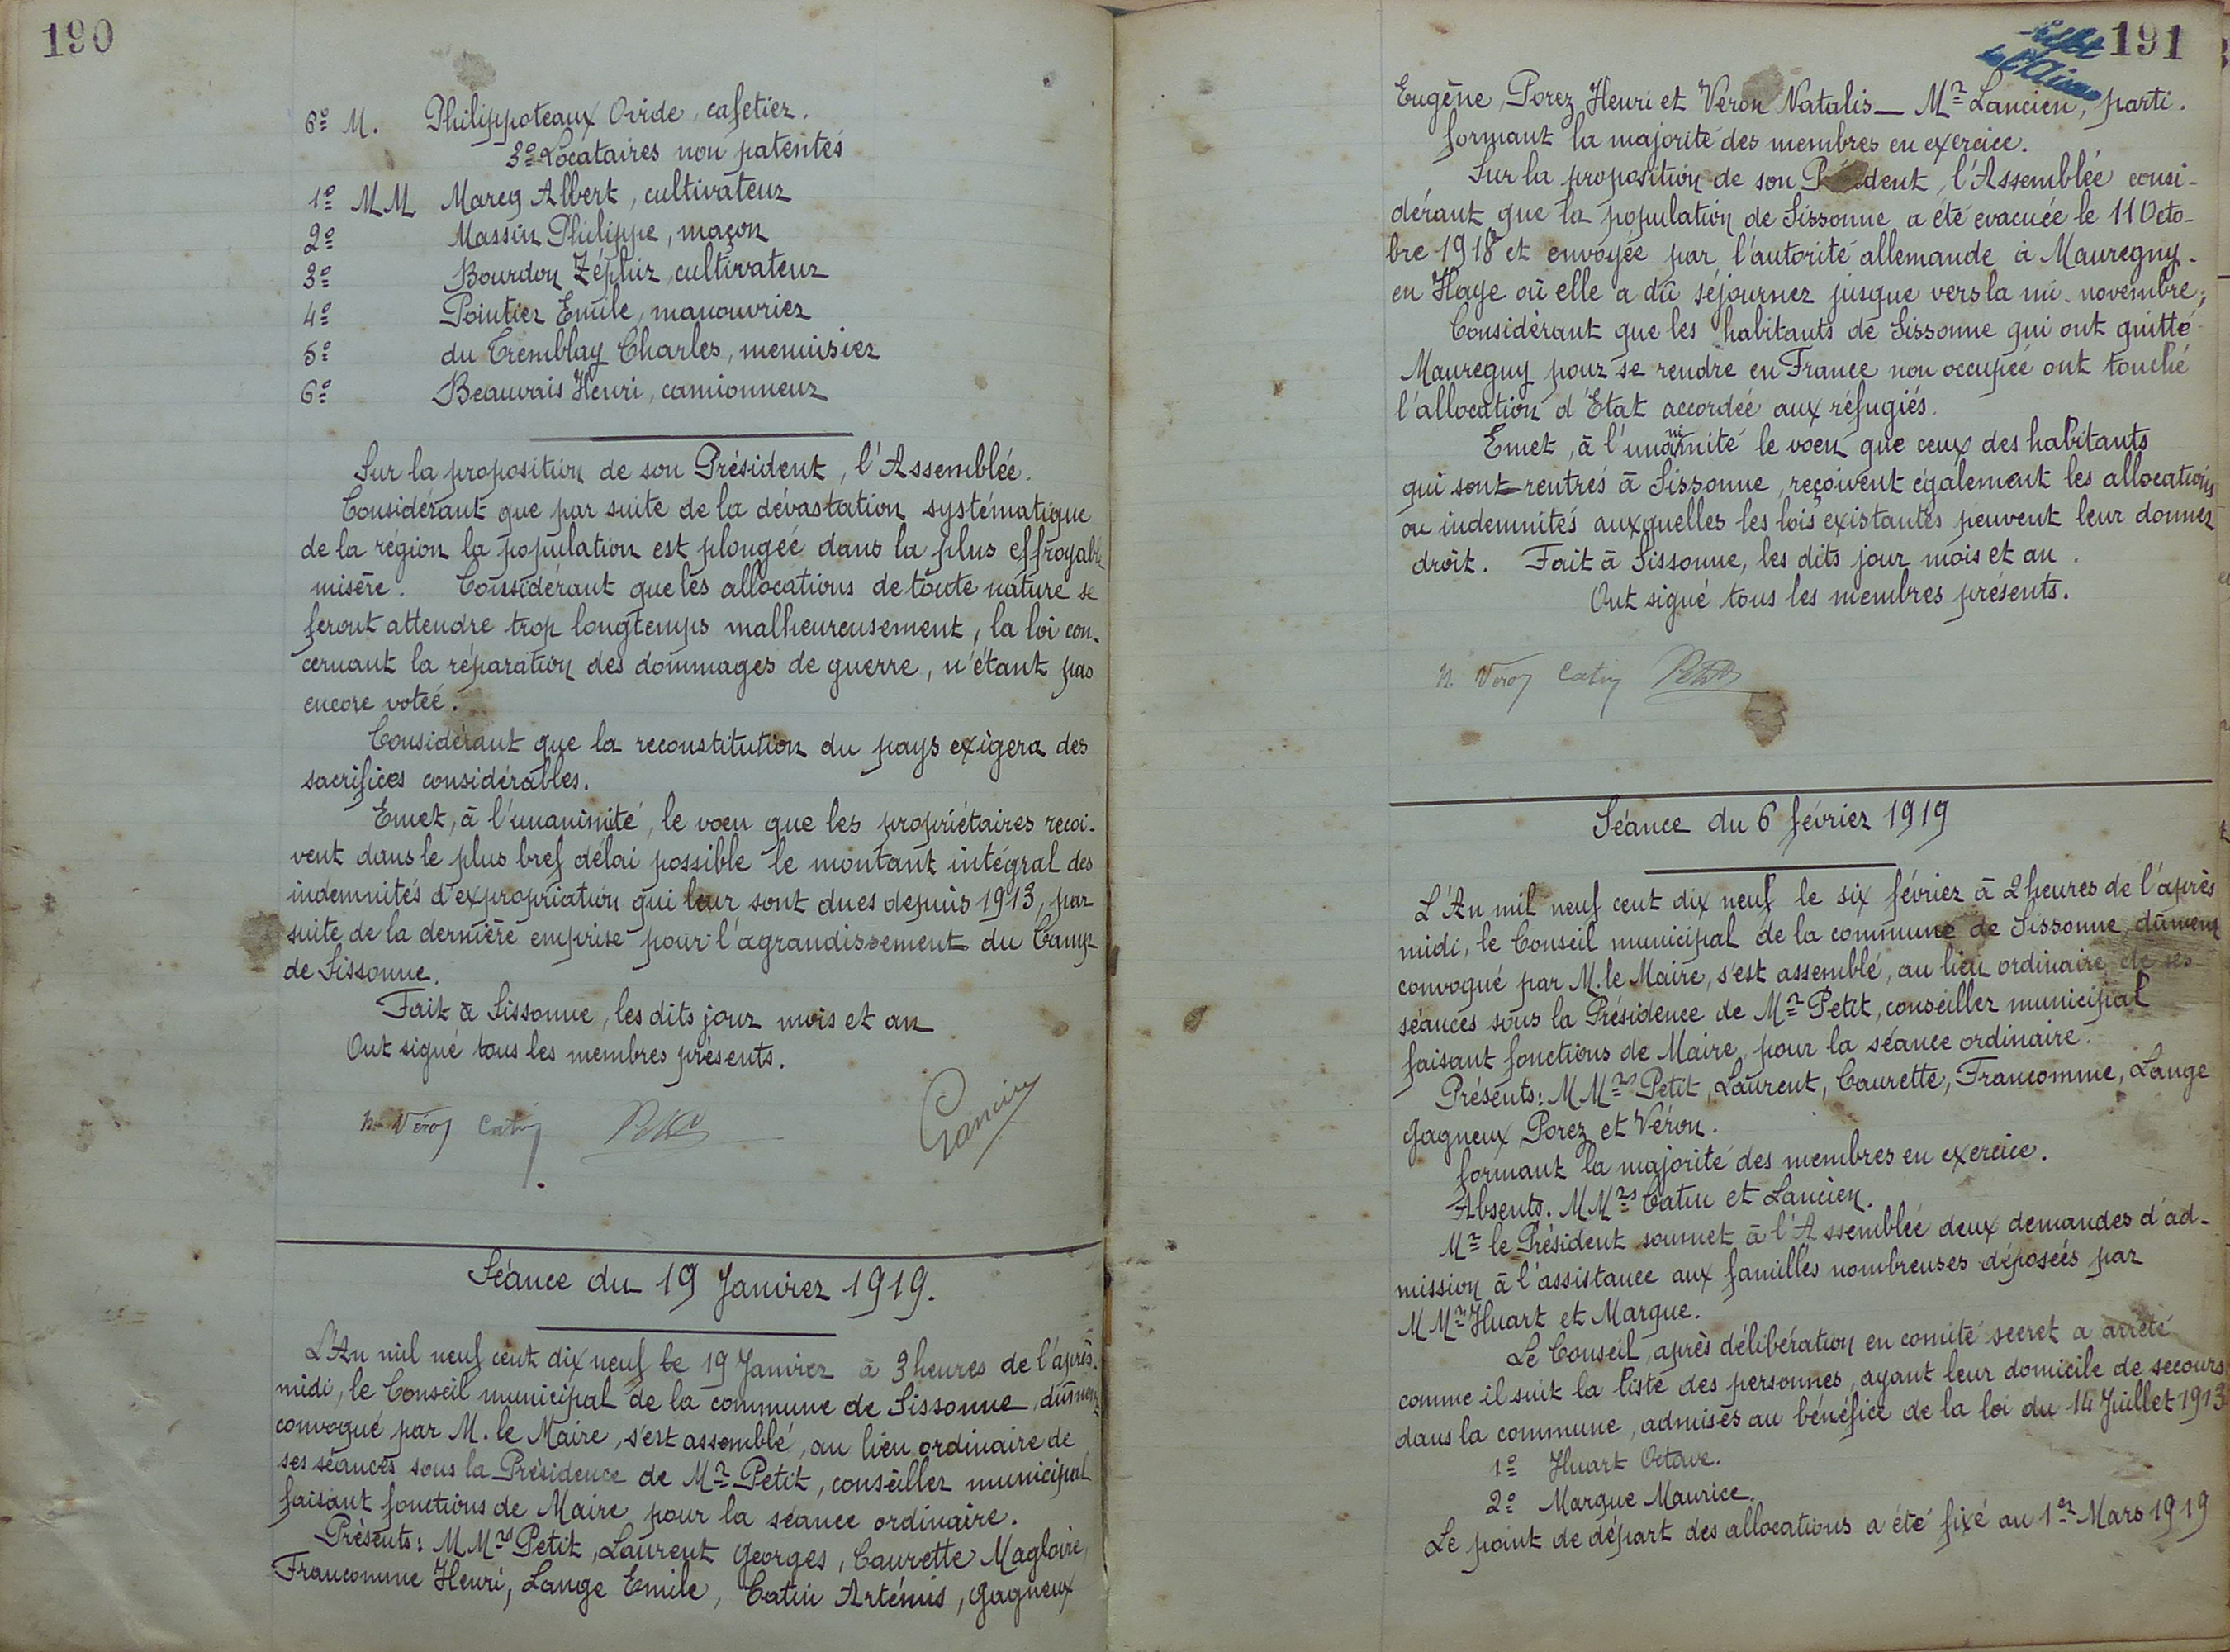 190
6º M. Philippoteaux Ovide, cafetier.
3º Locataires non patentés
1º MM Mareg Albert, cultivateur
2º Massin Philippe, maçon
3º Bourdon Zéphir, cultivateur
4º Pointier Emile, manouvrier
5º du Tremblay Charles, menuisier
6º Beauvais Henri, camionneur
Sur la proposition de son Président, l'Assemblée.
Considérant que par suite de la dévastation systématique
de la région la population est plongée dans la plus effroyable
misère. Considérant que les allocations de toute nature se
feront attendre trop longtemps malheureusement, la loi con-
cernant la réparation des dommages de guerre, n'étant pas
encore votée.
Considérant que la reconstitution du pays exigera des
sacrifices considérables.
Emet, à l'unanimité, le voeu que les propriétaires reçoi-
vent dans le plus bref délai possible le montant intégral des
indemnités d'expropriation qui leur sont dues depuis 1913, par
suite de la dernière emprise pour l'agrandissement du Camp
de Sissonne.
Fait à Sissonne, les dits jour mois et an
Ont signé tous les membres présents.
N. Véron Catin Petit
Séance du 19 Janvier 1919.
L'An mil neuf cent dix neuf le 19 Janvier à 3 heures de l'après-
midi, le Conseil municipal de la commune de Sissonne, dûment
convoqué par M. le Maire, s'est assemblé, au lieu ordinaire de
ses séances sous la Présidence de Mr Petit, conseiller municipal
faisant fonctions de Maire pour la séance ordinaire.
Présents: MMrs Petit, Laurent Georges, Caurette Magloire,
Francomme Henri, Lange Emile, Catin Arténis, Gagneux
191
de l'Aisne
Eugène, Porez Henri et Véron Natalis — Mr Lancien, parti.
formant la majorité des membres en exercice.
Sur la proposition de son Président, l'Assemblée consi-
dérant que la population de Sissonne a été evacuée le 11 Octo-
bre 1918 et envoyée par l'autorité allemande à Mauregny-
en Haye où elle a dû séjourner jusque vers la mi-novembre;
Considérant que les habitants de Sissonne qui ont quitté
Mauregny pour se rendre en France non occupée ont touché
l'allocation d'Etat accordée aux réfugiés.
Emet, à l'unanimité le voeu que ceux des habitants
qui sont rentrés à Sissonne, reçoivent également les allocations
ou indemnités auxquelles les lois existantes peuvent leur donner
droit. Fait à Sissonne, les dits jour mois et an.
Ont signé tous les membres présents.
N. Véron Catin Petit
Séance du 6 février 1919
L'An mil neuf cent dix neuf le six février à 2 heures de l'après
midi, le Conseil municipal de la commune de Sissonne, dûment
convoqué par M. le Maire, s'est assemblé, au lieu ordinaire de ses
séances sous la Présidence de Mr Petit, conseiller municipal
faisant fonctions de Maire pour la séance ordinaire.
Présents: MMrs Petit, Laurent, Caurette, Francomme, Lange
Gagneux, Porez et Véron.
formant la majorité des membres en exercice.
Absents. MMrs Catin et Lancien.
Mr le Président soumet à l'Assemblée deux demandes d'ad-
mission à l'assistance aux familles nombreuses déposées par
MMrs Huart et Margue.
Le Conseil, après délibération en comité secret a arrêté
comme il suit la liste des personnes, ayant leur domicile de secours
dans la commune, admises au bénéfice de la loi du 14 Juillet 1913
1º Huart Octave.
2º Margue Maurice.
Le point de départ des allocations a été fixé au 1er Mars 1919